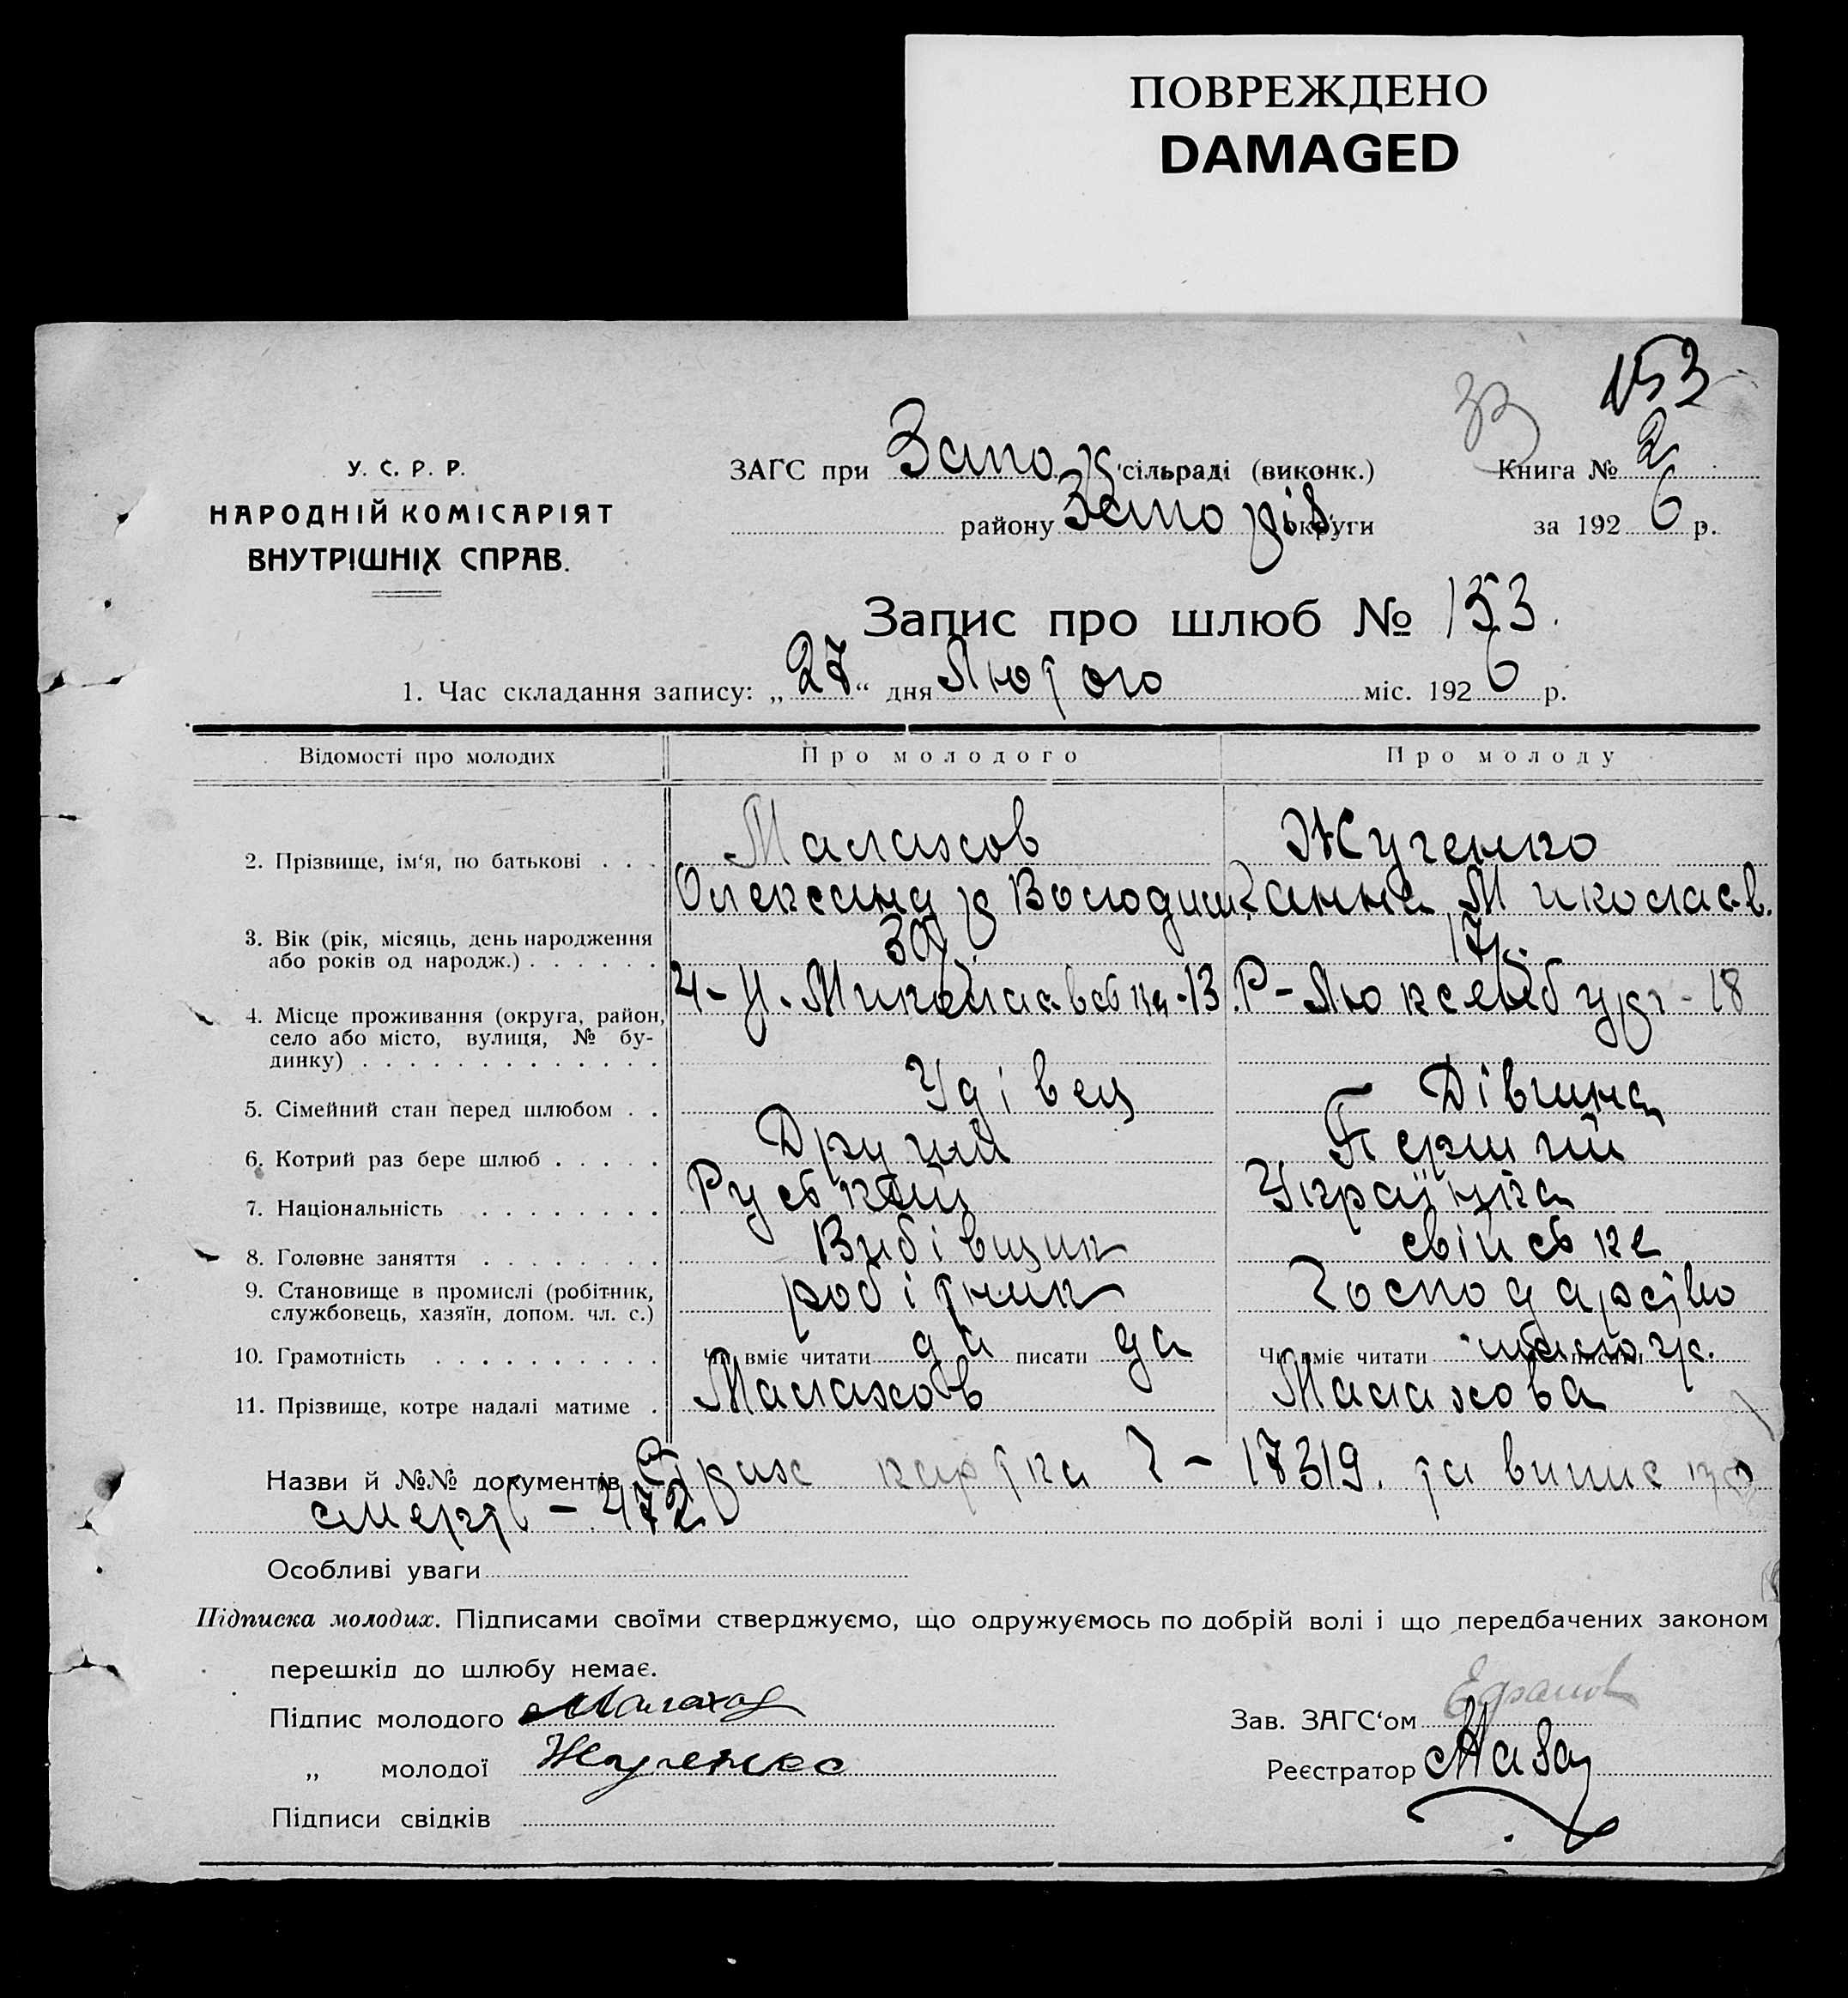 ПОВРЕЖДЕНО
DAMAGED
153
У. С. Р. Р.
НАРОДНІЙ КОМІСАРІЯТ
ВНУТРІШНІХ СПРАВ.
ЗАГС при Запор сільраді (виконк.)
Книга № 2
району Запоріз округи
за 1926 р.
Запис про шлюб № 153.
1. Час складання запису: „27“ дня Лютого міс. 1926 р.
Відомості про молодих Про молодого Про молоду
2. Прізвище, ім'я, по батькові . . . Малахов Жученко
Олександр Володим. Ганна Миколаєв.
3. Вік (рік, місяць, день народження 30 р. 17 р.
або років од народж.) . . . . . .
4. Місце проживання (округа, район, Миколаєвська - 13 Р - Люксембург - 18
село або місто, вулиця, № бу-
динку) . . . . . . . . . . . . .
5. Сімейний стан перед шлюбом . . Удівец Дівчина
6. Котрий раз бере шлюб . . . . . Другий Перший
7. Національність . . . . . . . . . Руський Українка
8. Головне заняття . . . . . . . . Вибівщик свійське
9. Становище в промислі (робітник, робітник господарство
службовець, хазяїн, допом. чл. с.)
10. Грамотність . . . . . . . . . . Чи вміє читати да писати да Чи вміє читати писати
11. Прізвище, котре надалі матиме . Малахов Малахова
Назви й №№ документів Страх картка Г - 17319. та випис про
смерть - 472
Особливі уваги
Підписка молодих. Підписами своїми стверджуємо, що одружуємось по добрій волі і що передбачених законом
перешкід до шлюбу немає.
Підпис молодого Малахов
Зав. ЗАГС'ом
„ молодої Жученко
Реєстратор
Підписи свідків